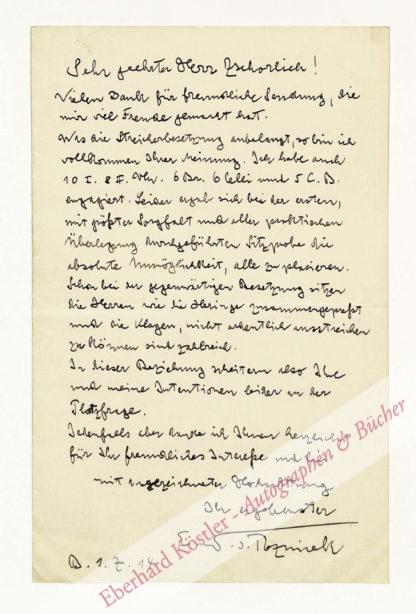 Sehr geehrter Herr Zschorlich!
Vielen Dank für freundliche Sendung, die
mir viel Freude gemacht hat.
Was die Streicherbesetzung anbelangt, so bin ich
vollkommen Ihrer Meinung. Ich habe auch
10 I. 8 II. Vln. 6 Br. 6 Celli und 5 C.B.
engagiert. Leider ergab sich bei der ersten,
mit größter Sorgfalt und aller praktischen
Überlegung durchgeführten Sitzprobe die
absolute Unmöglichkeit, alle zu placieren.
Schon bei der gegenwärtigen Besetzung sitzen
die Herren wie die Häringe zusammengepreßt
und die Klagen, nicht ordentlich ausstreichen
zu können sind zahlreich.
In dieser Beziehung scheitern also Ihre
und meine Intentionen leider an der
Platzfrage.
Jedenfalls aber danke ich Ihnen herzlichst
für Ihr freundliches Interesse und bin
mit ausgezeichneter Hochachtung
Ihr ergebenster
v. Reznicek
B. 1. Z. 14
Eberhard Köstler - Autographen & Bücher